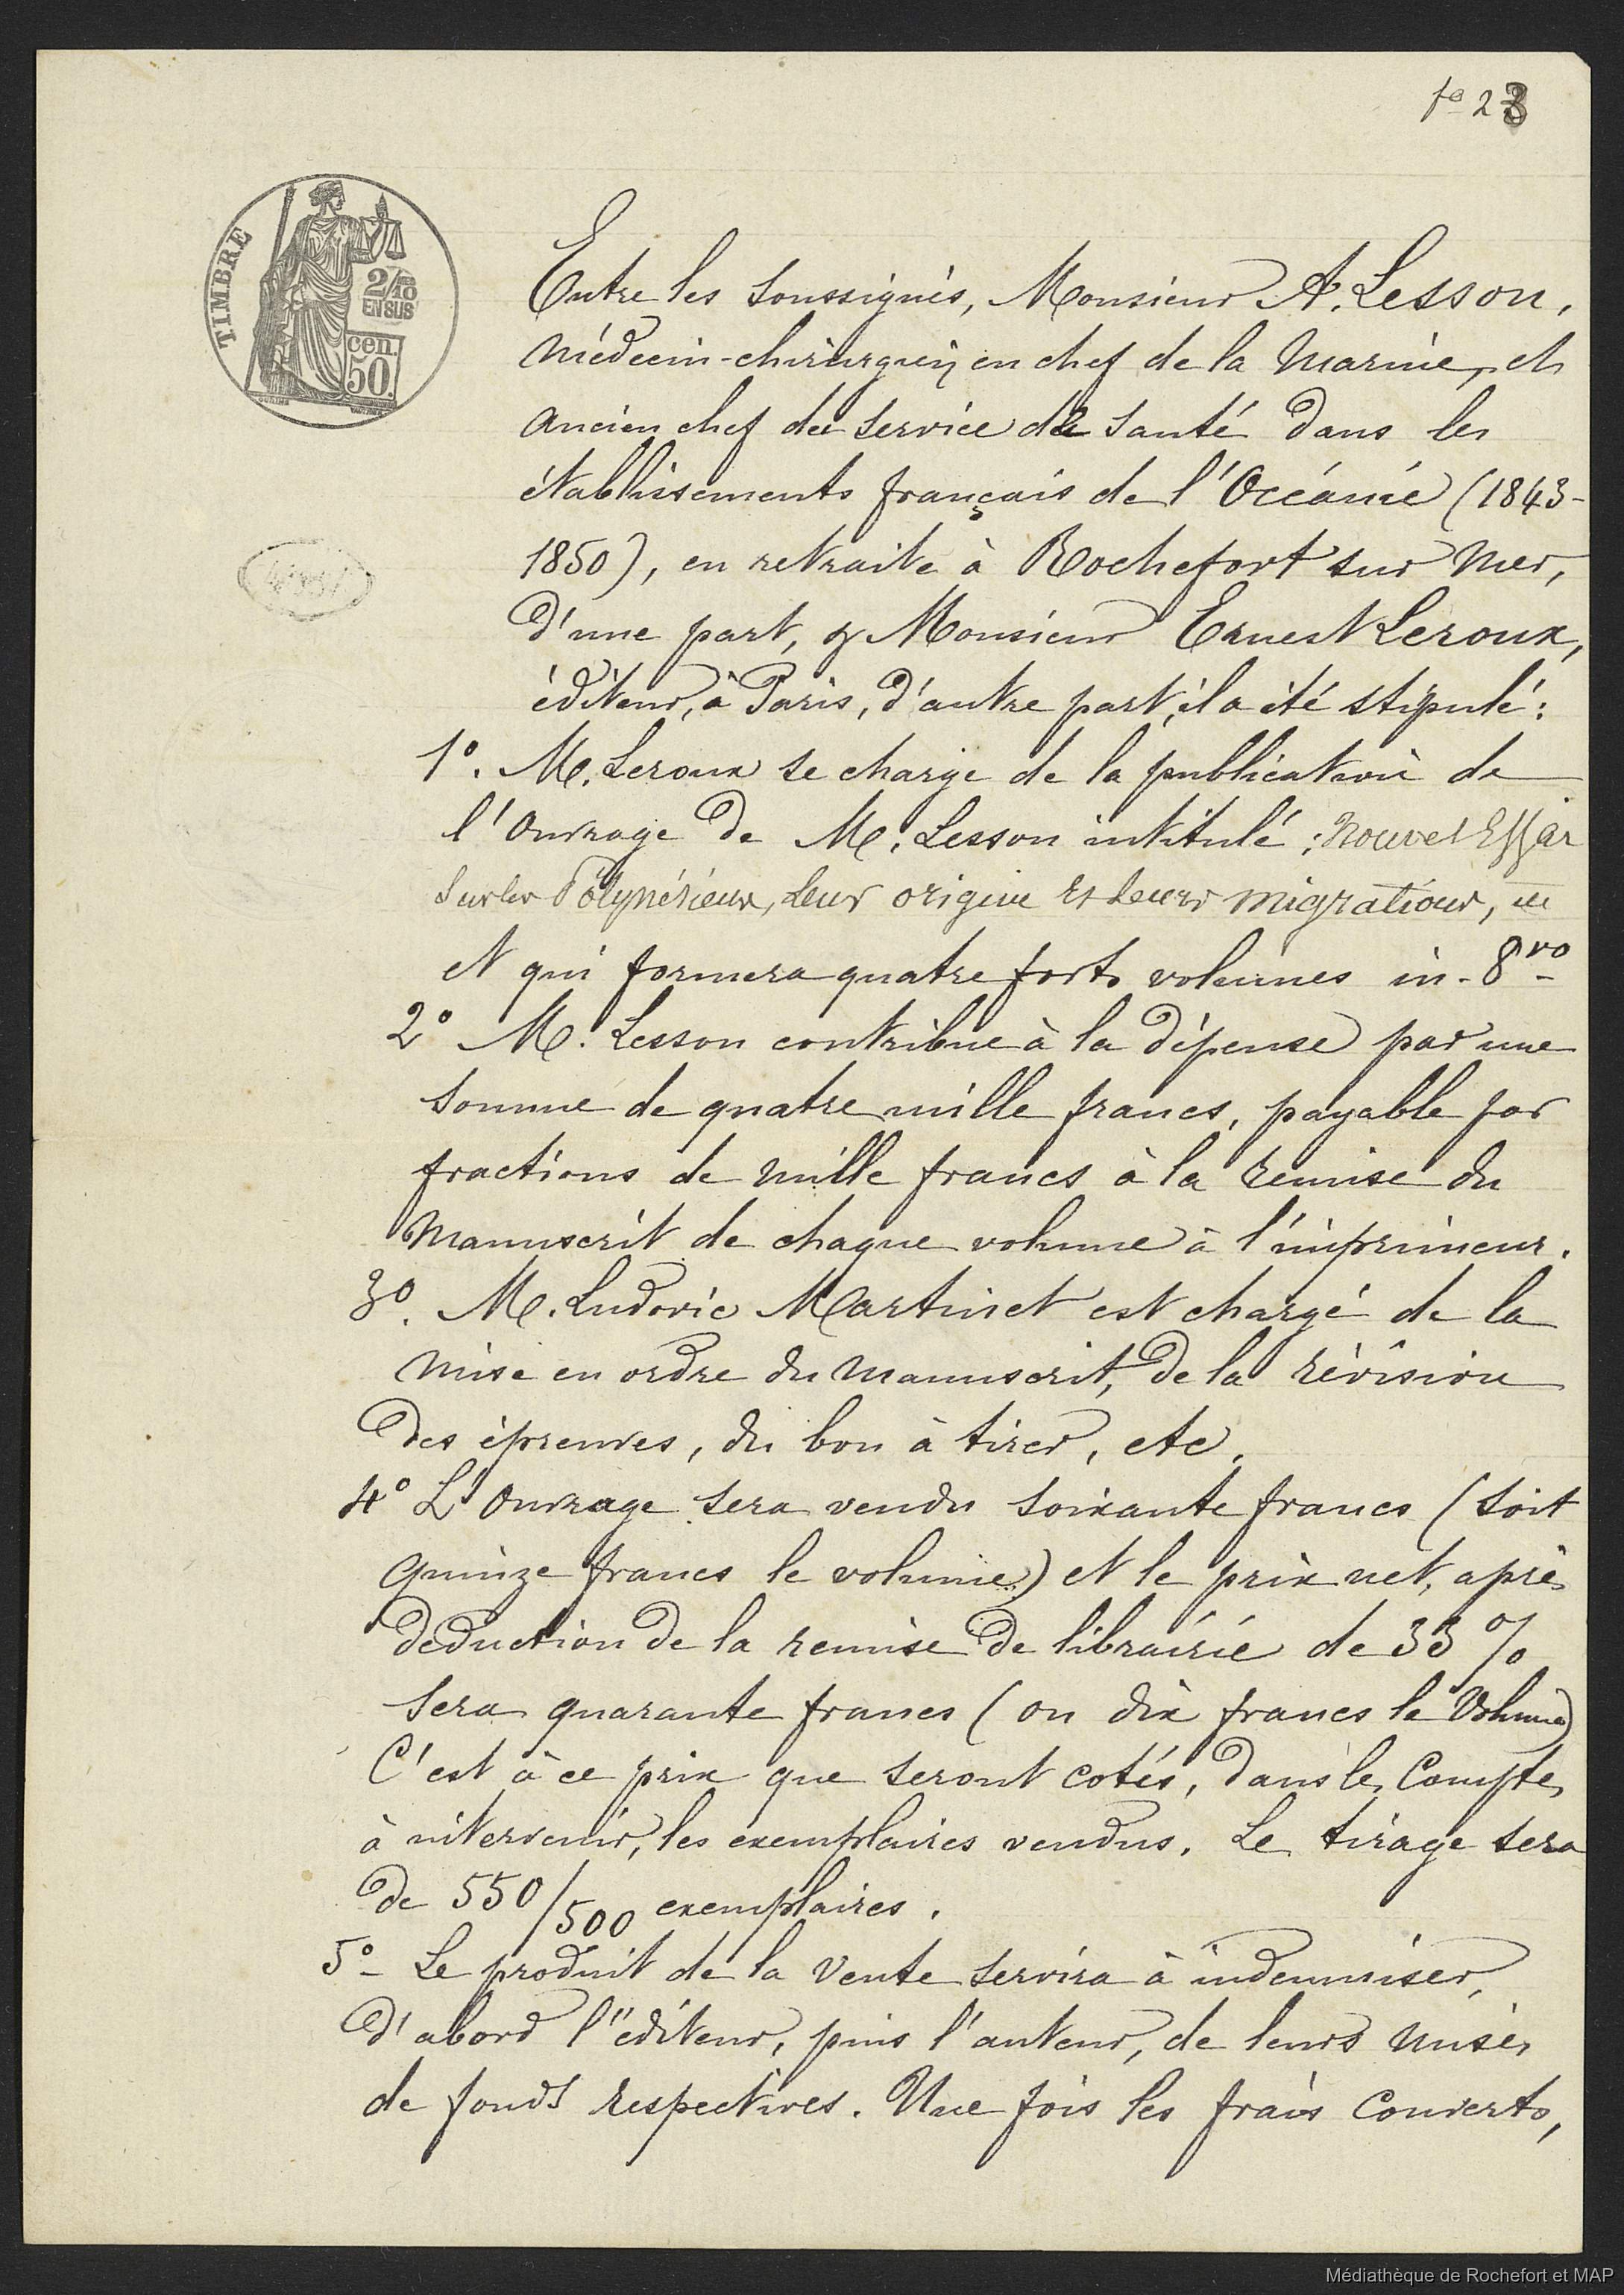 fo 23
TIMBRE
2/10
EN SUS
cen.
50.
Entre les soussignés, Monsieur A. Lesson,
Médecin-chirurgien en chef de la Marine, et
ancien chef du service de santé dans les
établissements français de l'Océanie (1843-
1850), en retraite à Rochefort sur Mer,
d'une part, & Monsieur Ernest Leroux,
éditeur, à Paris, d'autre part, il a été stipulé:
1o. M. Leroux se charge de la publication de
l'Ouvrage de M. Lesson intitulé: Nouvel Essai
sur les Polynésiens, leur origine et leurs migrations,
et qui formera quatre forts volumes in-8vo
2o M. Lesson contribue à la dépense par une
somme de quatre mille francs, payable par
fractions de mille francs à la remise du
Manuscrit de chaque volume à l'imprimeur.
3o. M. Ludovic Martinet est chargé de la
mise en ordre du manuscrit, de la révision
des épreuves, du bon à tirer, etc.
4o L'Ouvrage sera vendu soixante francs (soit
quinze francs le volume) et le prix net, après
déduction de la remise de librairie de 33 %
sera quarante francs (ou dix francs le Volume)
C'est à ce prix que seront cotés, dans les Comptes
à intervenir, les exemplaires vendus. Le tirage sera
de 550/500 exemplaires.
5o- Le produit de la vente servira à indemniser,
d'abord l'éditeur, puis l'auteur, de leurs mises
de fonds respectives. Une fois les frais couverts,
Médiathèque de Rochefort et MAP